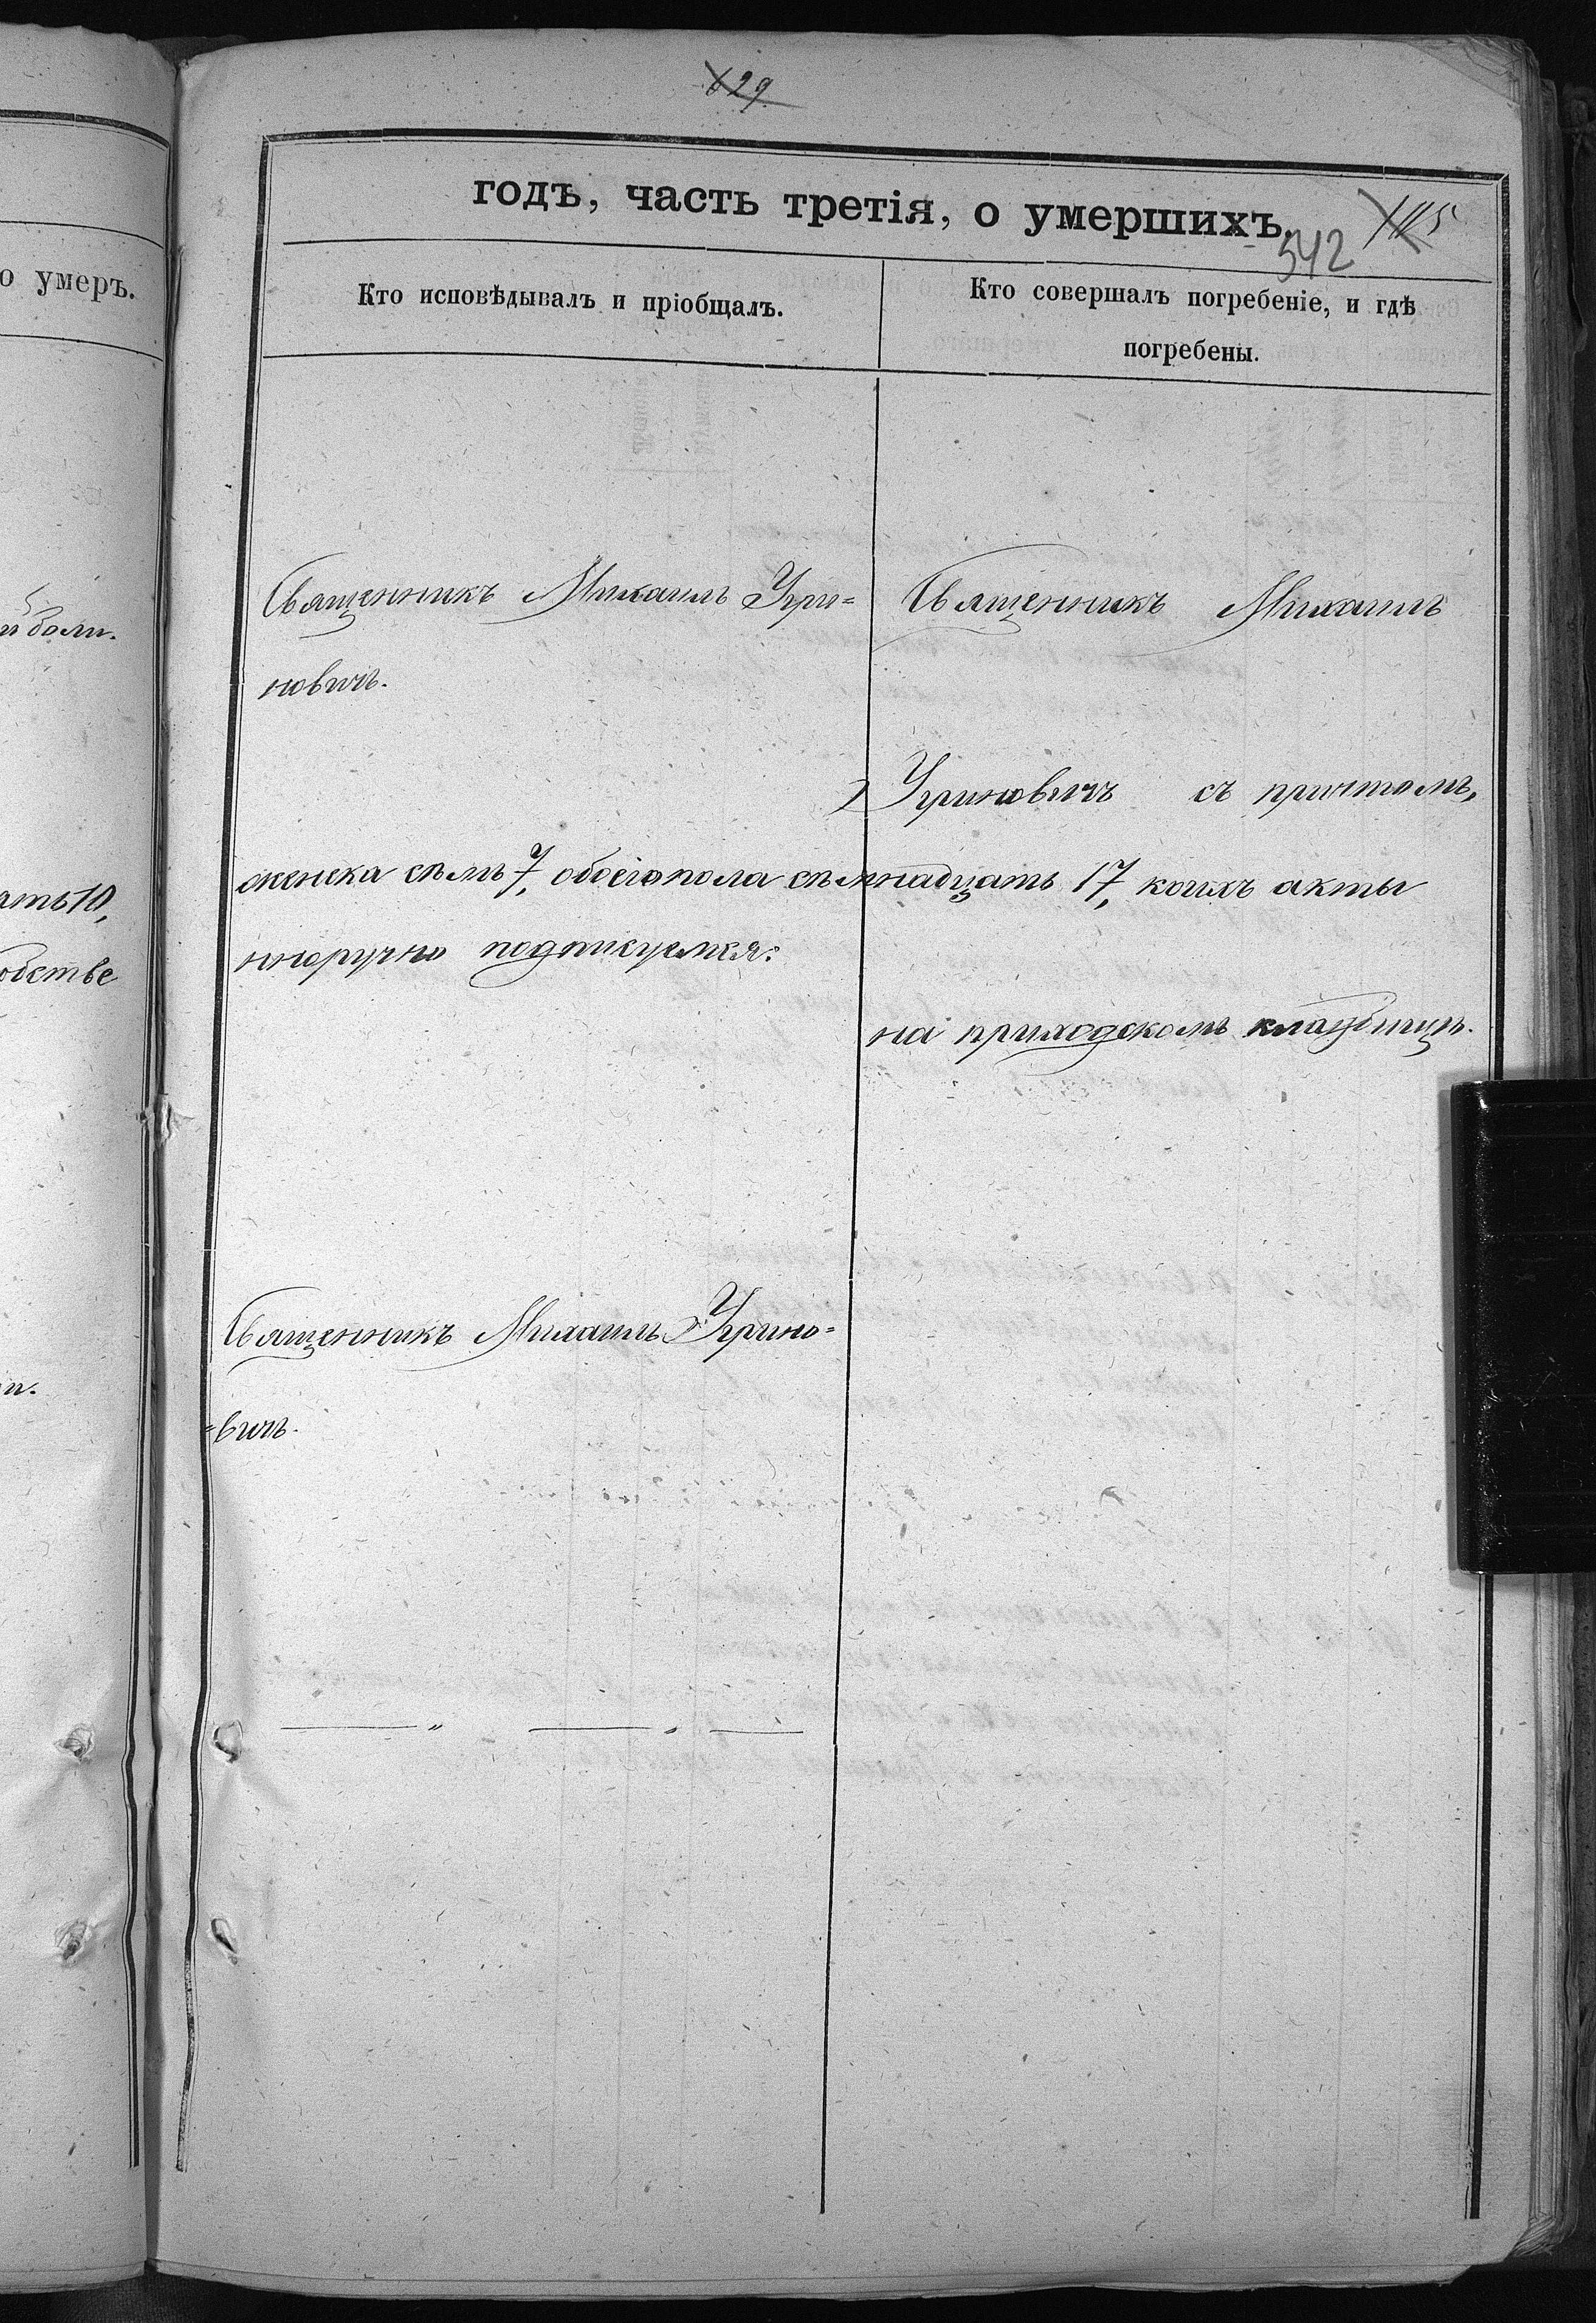 829
годъ, часть третія, о умершихъ.
542
о умеръ.
Кто исповѣдывалъ и пріобщалъ.
Кто совершалъ погребеніе, и гдѣ
погребены.
Священникъ Михаилъ Угри=
новичъ.
Священникъ Михаилъ
боли.
Угриновичъ съ причтомъ,
ать 10,
женска сѣмь 7, обоего пола сѣмнадцать 17, коихъ акты
обстве
нноручно подписуемся:
на приходскомъ кладбищѣ.
Священникъ Михаилъ Угрино=
=вичъ.